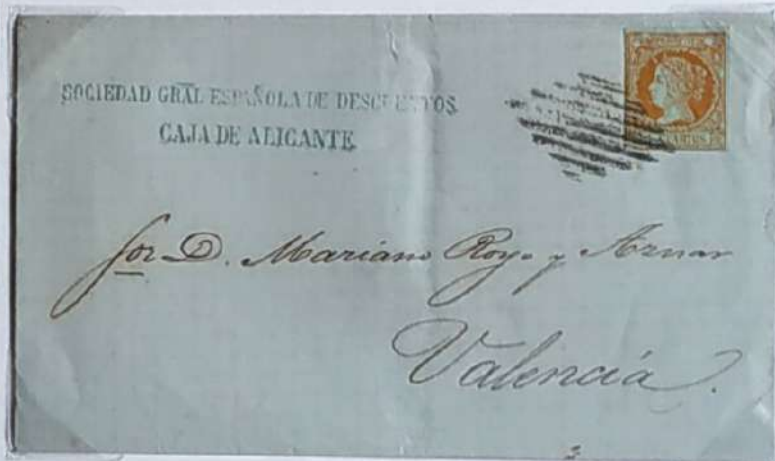 SOCIEDAD GRAL ESPAÑOLA DE DESCUENTOS.
CAJA DE ALICANTE.
CUARTOS
Sor D. Mariano Royo y Aznar
Valencia.